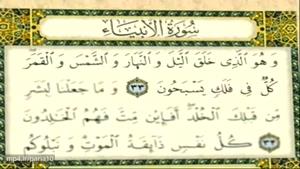 سُورَةُ الأَنبِيَاء
وَ هُوَ الَّذِى خَلَقَ الَّيْلَ وَ النَّهَارَ وَ الشَّمْسَ وَ الْقَمَرَ
كُلٌّ فِى فَلَكٍ يَسْبَحُونَ ۝٣٣ وَ مَا جَعَلْنَا لِبَشَرٍ
مِن قَبْلِكَ الْخُلْدَ أَفَإِيْن مِتَّ فَهُمُ الْخَالِدُونَ
۝٣٤ كُلُّ نَفْسٍ ذَائِقَةُ الْمَوْتِ وَ نَبْلُوكُم
mp4.ir/paria10